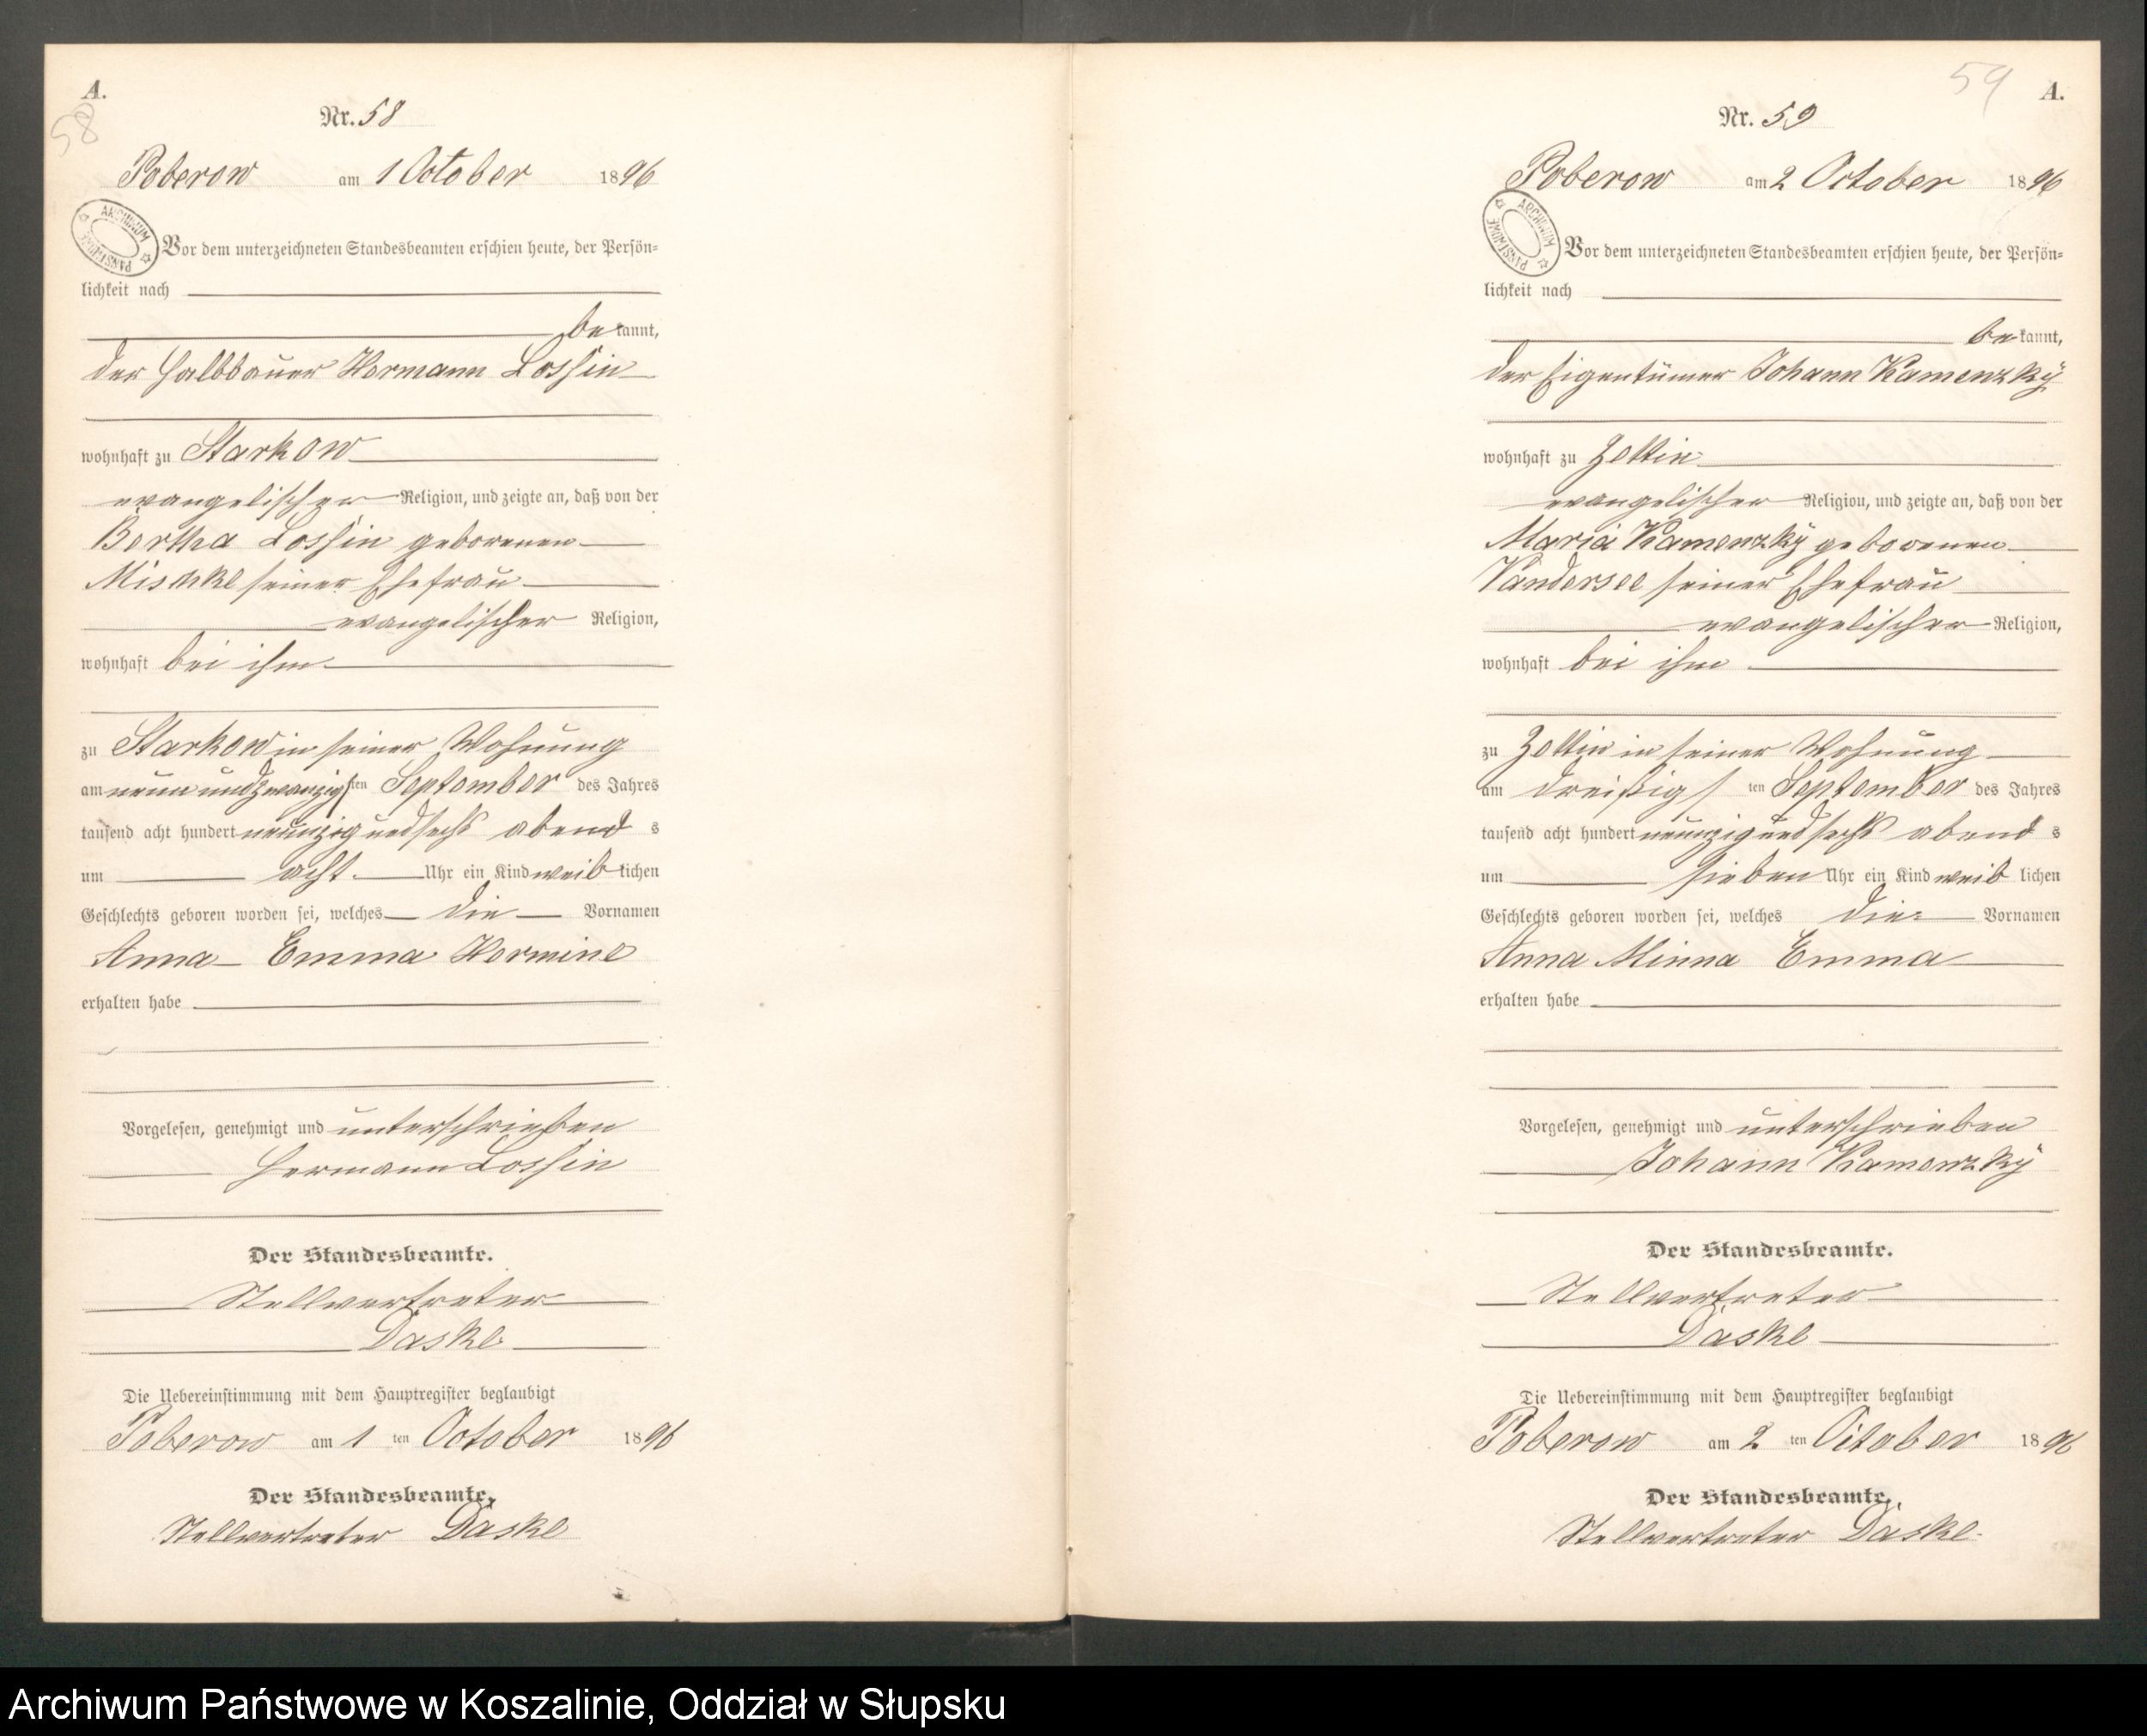 A.
58
Nr. 58
Poberow am 1 October 1896
ARCHIWUM PAŃSTWOWE
Vor dem unterzeichneten Standesbeamten erschien heute, der Persön=
lichkeit nach
bekannt,
der Halbbauer Hermann Lossin
wohnhaft zu Starkow
evangelischer Religion, und zeigte an, daß von der
Bertha Lossin geborenen
Mischke seiner Ehefrau
evangelischer Religion,
wohnhaft bei ihm
zu Starkow in seiner Wohnung
am neunundzwanzigsten September des Jahres
tausend acht hundert neunzig und sechs abends
um acht Uhr ein Kind weiblichen
Geschlechts geboren worden sei, welches die Vornamen
Anna Emma Hermine
erhalten habe
Vorgelesen, genehmigt und unterschrieben
Hermann Lossin
Der Standesbeamte.
Stellvertreter
Daske
Die Uebereinstimmung mit dem Hauptregister beglaubigt
Poberow am 1 ten October 1896
Der Standesbeamte.
Stellvertreter Daske
59
A.
Nr. 59
Poberow am 2 October 1896
ARCHIWUM PAŃSTWOWE
Vor dem unterzeichneten Standesbeamten erschien heute, der Persön=
lichkeit nach
bekannt,
der Eigentümer Johann Kamenzky
wohnhaft zu Zettin
evangelischer Religion, und zeigte an, daß von der
Maria Kamenzky geborenen
Vandersee seiner Ehefrau
evangelischer Religion,
wohnhaft bei ihm
zu Zettin in seiner Wohnung
am dreißigsten September des Jahres
tausend acht hundert neunzig und sechs abends
um sieben Uhr ein Kind weiblichen
Geschlechts geboren worden sei, welches die Vornamen
Anna Minna Emma
erhalten habe
Vorgelesen, genehmigt und unterschrieben
Johann Kamenzky
Der Standesbeamte.
Stellvertreter
Daske
Die Uebereinstimmung mit dem Hauptregister beglaubigt
Poberow am 2 ten October 1896
Der Standesbeamte.
Stellvertreter Daske
Archiwum Państwowe w Koszalinie, Oddział w Słupsku